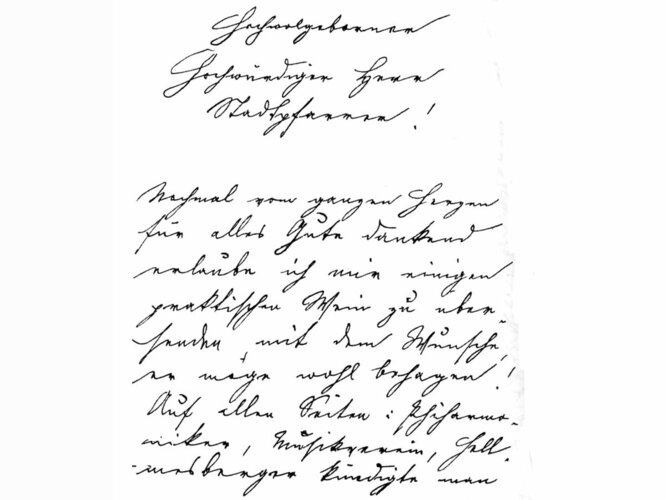 Hochwolgeborner
Hochwürdiger Herr
Stadtpfarrer!
Nochmal vom ganzen Herzen
für alles Gute dankend
erlaube ich mir einigen
praktischen Wein zu über-
senden mit dem Wunsche,
er möge wohl behagen!
Auf allen Seiten: Philharmo-
niker, Musikverein, Hell-
mesberger kündigte man